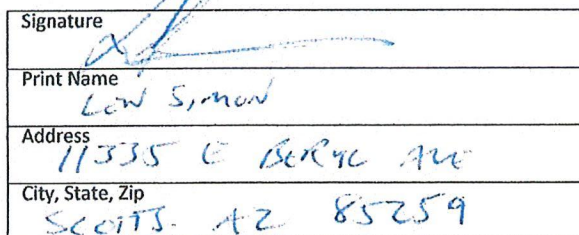 Signature
Print Name
Low Simon
Address
11335 E BERYL AVE
City, State, Zip
SCOTTS. AZ 85259